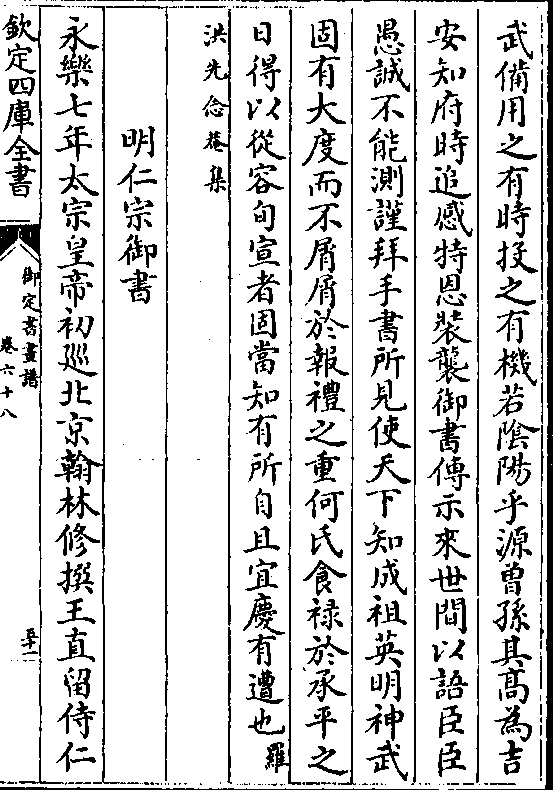 武備用之有時投之有機若陰陽乎源曽孫其髙為吉
安知府時追感特恩裝襲御書傳示來世間以語臣臣
愚誠不能測謹拜手書所見使天下知成祖英明神武
固有大度而不屑屑於報禮之重何氏食禄於承平之
日得以從容旬宣者固當知有所自且宜慶有遭也羅
洪先念菴集
明仁宗御書
永樂七年太宗皇帝初廵北京翰林修撰王直留侍仁
欽定四庫全書
御定書畫譜
卷六十八
五十一